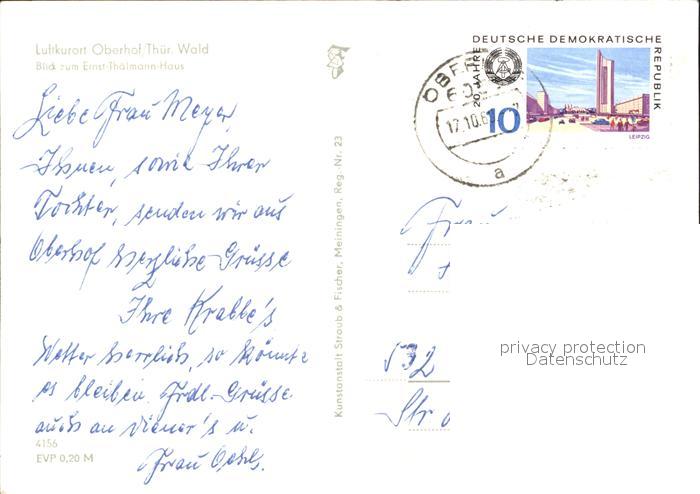 Luftkurort Oberhof/Thür. Wald
Blick zum Ernst-Thälmann-Haus
Liebe Frau Meyer,
Ihnen, sowie Ihrer
Tochter, senden wir aus
Oberhof herzliche Grüsse
Ihre Krabbe's
Wetter herrlich, so könnte
es bleiben. Frdl. Grüsse
auch an Diener's u.
Frau Oehls.
4156
EVP 0,20 M
Kunstanstalt Straub & Fischer, Meiningen, Reg.-Nr. 23
DEUTSCHE DEMOKRATISCHE
REPUBLIK
20 JAHRE
10
LEIPZIG
17.10.6
a
Frau
532
Str
privacy protection
Datenschutz